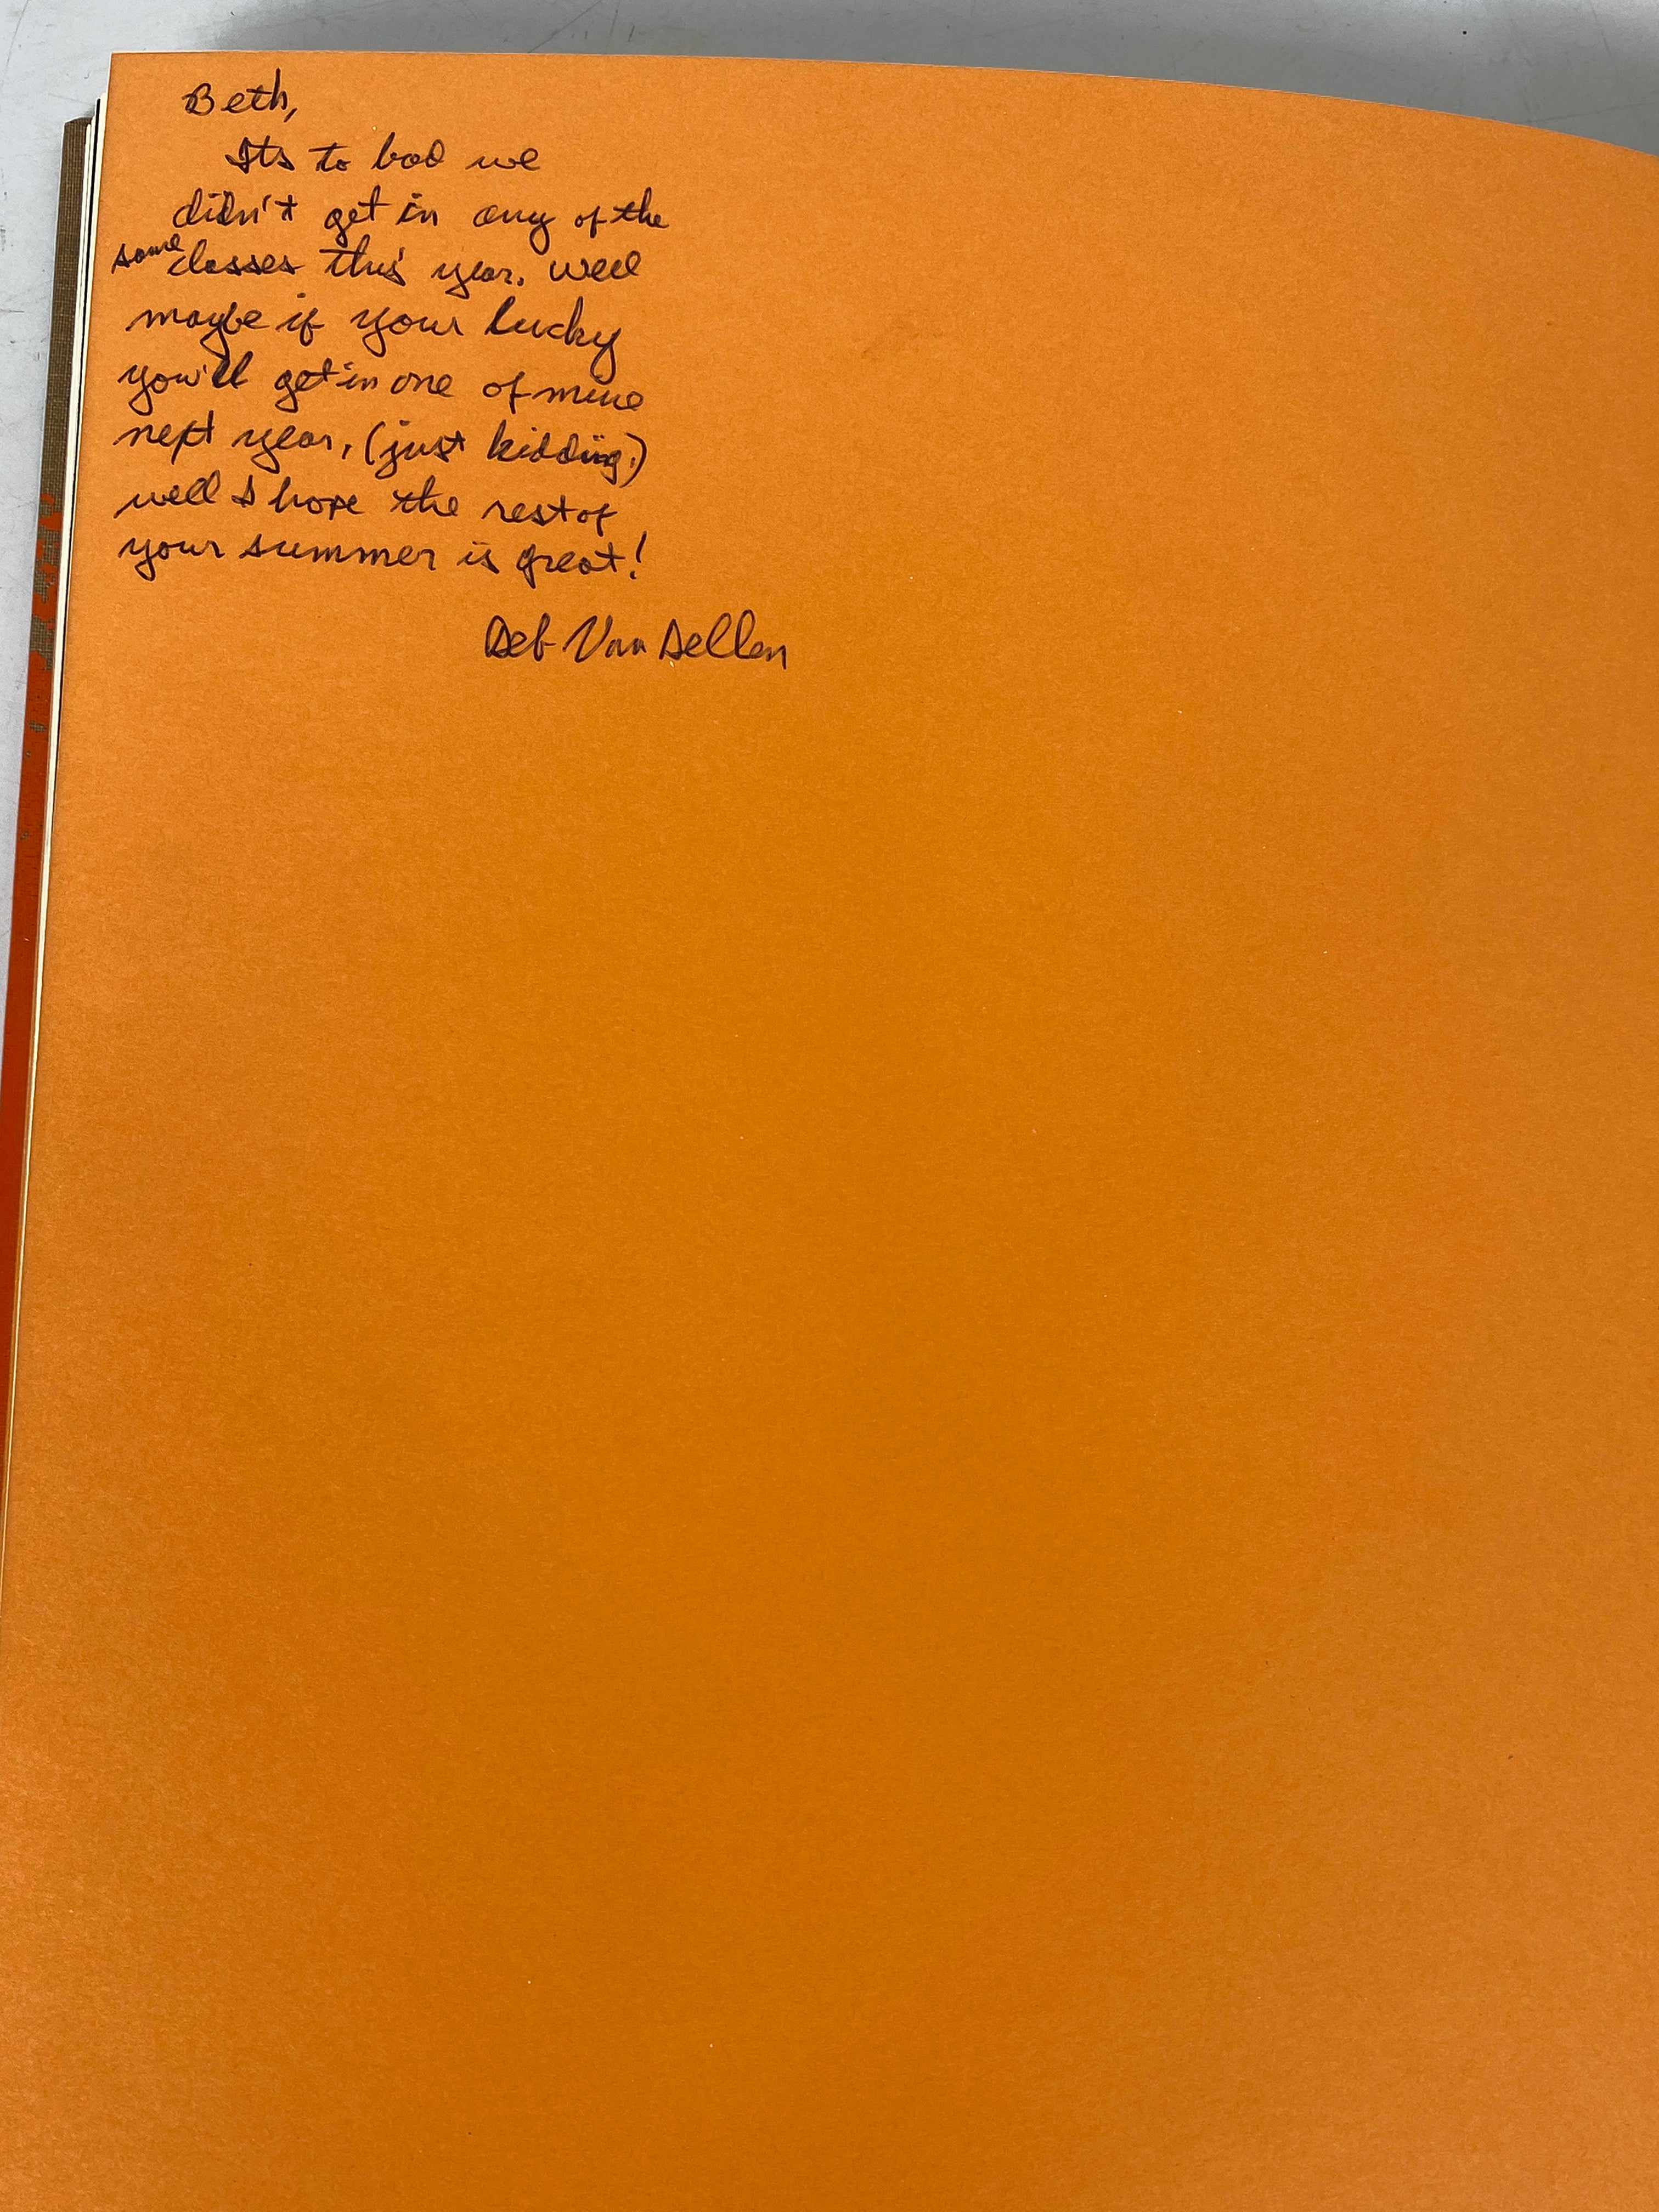 Beth,
Its to bad we
didn't get in any of the
same classes this year. Well
maybe if your lucky
you'll get in one of mine
next year, (just kidding.)
well I hope the rest of
your summer is great!
Deb Van Dellen